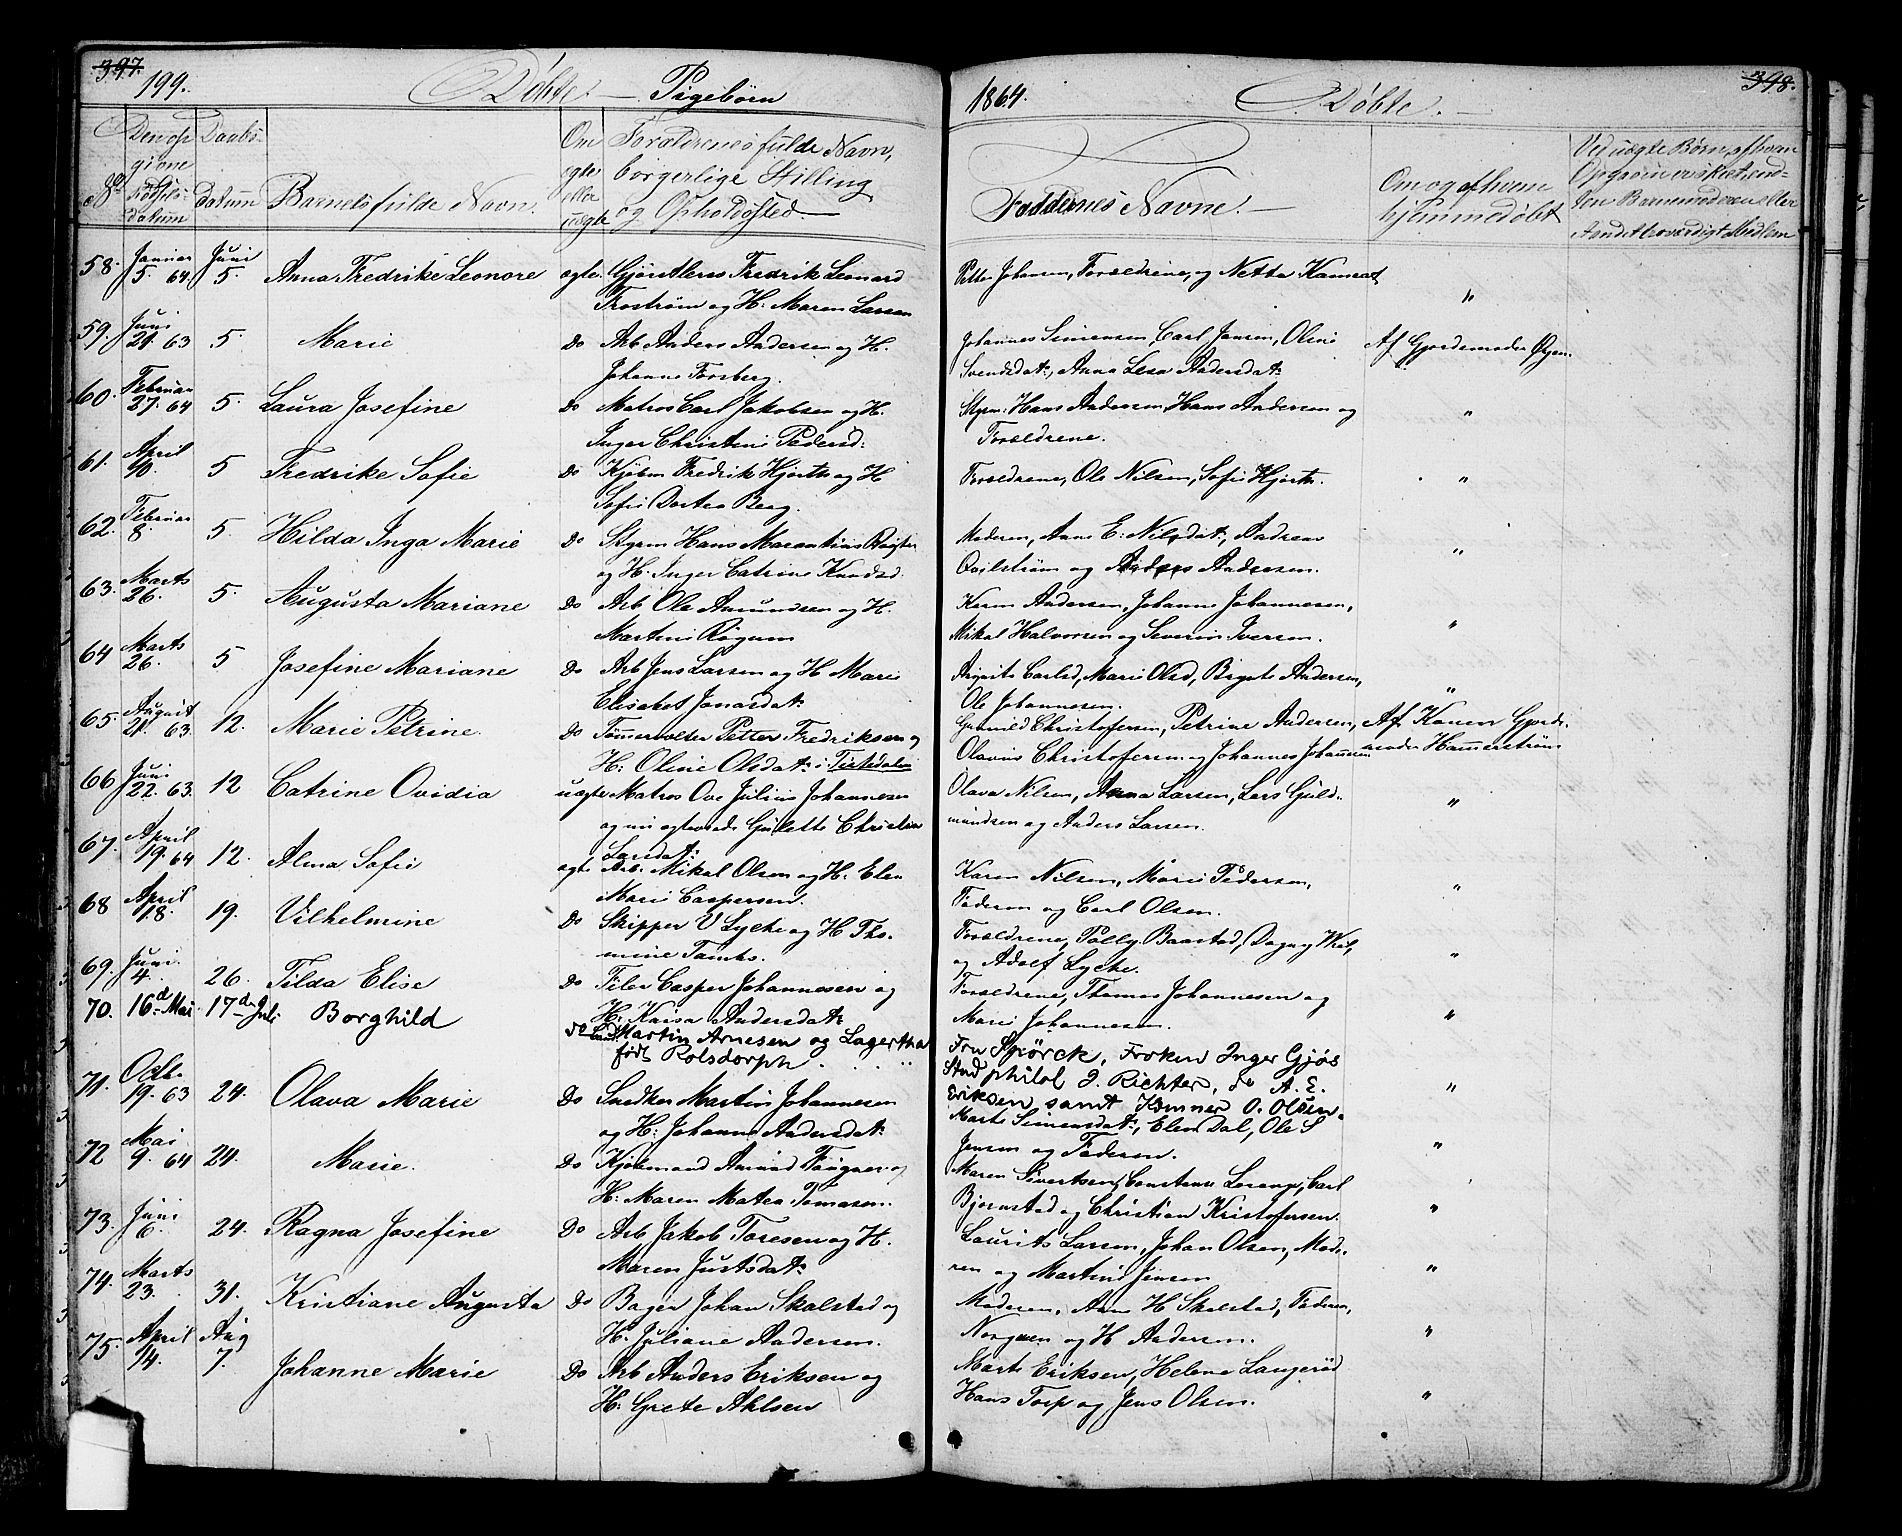 397.
199.
Döbte. — Pigebörn
1864.
Döbte. —
398.
No
Den op givne Födsels-datum
Daabs-Datum
Barnets fulde Navn.
Om ægte eller uægte
Forældrenes fulde Navn, borgerlige Stilling og Opholdssted. —
Faddernes Navne. —
Om og af hvem hjemmedöbt
58. Januar 5. 64 Juni 5 Anna Fredrike Leonore ægte. Gjörtlers Fredrik Leonard
Trostrøm og H: Maren Larsen
Petter Johansen, Forældrene, og Netta Kamsat "
59. Juni 21. 63 5. Marie Do Arb Anders Andersen og H.
Johanne Forsberg.
Johannes Simensen, Carl Jensen, Oline
Svendsdat:, Anna Lesa Andersdat:
Af Gjordemoder
60. Februar 27. 64 5. Laura Josefine Do Matros Carl Jakobsen og H.
Inger Christine Pedersd:
Styrm: Hans Andersen, Hans Andersen og
Forældrene. "
61. April 10. 5 Fredrike Sofie Do Kjöbm Fredrik Hjorth og H
Sofie Dortea Berg.
Forældrene, Ole Nilsen, Sofie Hjorth. "
62. Februar 8. 5. Hilda Inga Marie Do Styrm Hans Marentius
og H. Inger Catrine Knudsd.
Moderen, Anne E. Nilsdat:, Andreas
Qvilström og Anders Andresen. "
63. Marts 26. 5. Augusta Mariane Do Arb Ole Amundsen og H.
Martine
Karen Andersen, Johanne Johannesen,
Mikal Halvorsen og Severin Iversen. "
64 Marts 26. 5 Josefine Mariane Do Arb Jens Larsen og H Marie
Elisabet Jonasdat:
Carlsd, Marie Olsd, Birgitte Andersen,
Ole Johannesen. "
65. August 21. 63. 12. Marie Petrine. Do Petter Fredriksen og
H: Oline Olsdat: i Tistedalen
Gunnild Christofersen, Petrine Andersen,
Olavus Christofersen og Johannes Johannesen
Af Konen Gjorde-
moder Hammerström
66 Juni 22. 63. 12 Catrine Ovidia uægte Matros Ove Julius Johannesen
og Gulette Christine
Larsdat:
Olava Nilsen, Anna Larsen, Lars Guld-
mundsen og Anders Larsen. "
67. April 19. 64 12. Alma Sofie ægte Arb. Mikal Olsen og H: Elen
Marie Caspersen.
Karen Nilsen, Marie Pedersen,
Faderen og Carl Olsen. "
68 April 18. 19. Vilhelmine Do Skipper V Lyche og H Tho-
mine Tambs.
Forældrene, Polly Baastad, Dagny Wiel,
og Adolf Lyche. "
69. Juni 4. 26. Tilda Elise Do Filer Casper Johannesen og
H: Kaisa Andersdat:
Forældrene, Thomas Johannesen og
Marie Johannesen. "
70. 16d Mai 17de Juli Borghild do Cand. Martin Arnesen og Lagertha
født Rolsdorph . . . "
Fru Spörck, Frøken Inger Gjøs
Stud philol J. Richter, do A. E.
Eriksen samt Kemner O. Olsen.
71. Octb. 19. 63 24. Olava Marie Do Snedker Martin Johannesen
og H: Johanne Andersdat:
Marte Simensdat:, Elen Dal, Ole S
Jensen og Faderen. "
72 Mai 9. 64 24. Marie. Do Kjöbmand Amund Faugner og
H: Maren Matea Tomasen.
Maren Sivertsen, Constance Lorange, Carl
Bjornstad og Christian Kristofersen. "
73. Juni 6. 24. Ragna Josefine Do Arb Jakob Toresen og H.
Maren Justsdat:
Laurits Larsen, Johan Olsen, Mode-
ren og Martine Jensen "
74. Marts 23. 31. Kristiane Augusta Do Bager Johan Skolstad og
H. Juliane Andersen.
Moderen, Anne H Skolstad, Faderen,
Norgren og H Andersen. "
75. April 14. Aug 7. Johanne Marie Do Arb Anders Eriksen og
H: Grete Ahlsen
Marte Eriksen, Helene Langeröd
Hans Torp og Jens Olsen. "